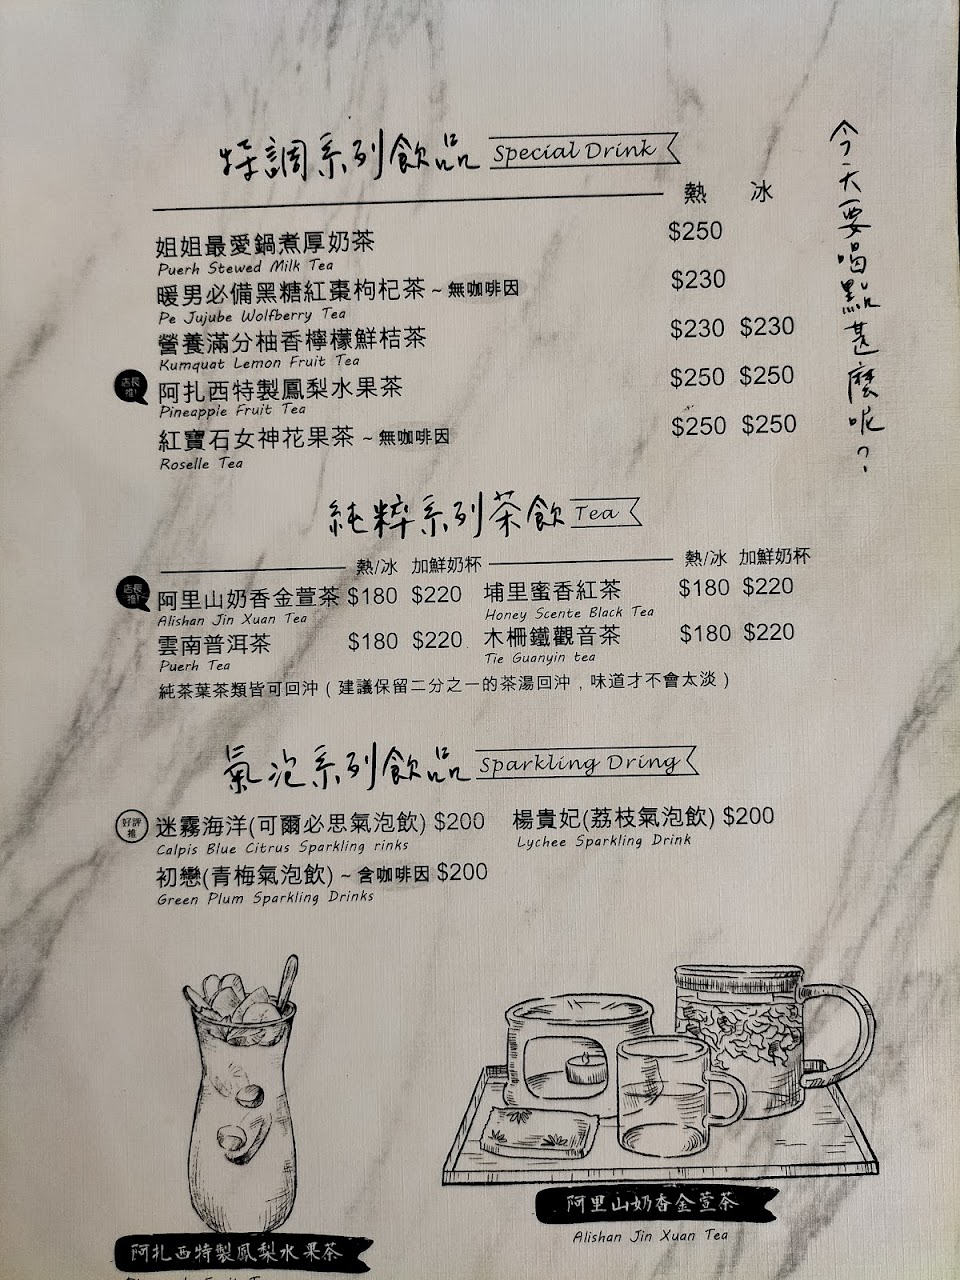 特調系列飲品 Special Drink
熱 冰
今天要喝點甚麼呢？
姐姐最愛鍋煮厚奶茶 $250
Puerh Stewed Milk Tea
暖男必備黑糖紅棗枸杞茶 ~ 無咖啡因 $230
Pe Jujube Wolfberry Tea
營養滿分柚香檸檬鮮桔茶 $230 $230
Kumquat Lemon Fruit Tea
店長推! 阿扎西特製鳳梨水果茶 $250 $250
Pineapple Fruit Tea
紅寶石女神花果茶 ~ 無咖啡因 $250 $250
Roselle Tea
純粹系列茶飲 Tea
熱/冰 加鮮奶杯 熱/冰 加鮮奶杯
店長推! 阿里山奶香金萱茶 $180 $220 埔里蜜香紅茶 $180 $220
Alishan Jin Xuan Tea Honey Scente Black Tea
雲南普洱茶 $180 $220 木柵鐵觀音茶 $180 $220
Puerh Tea Tie Guanyin tea
純茶葉茶類皆可回沖（建議保留二分之一的茶湯回沖，味道才不會太淡）
氣泡系列飲品 Sparkling Dring
好評推 迷霧海洋(可爾必思氣泡飲) $200 楊貴妃(荔枝氣泡飲) $200
Calpis Blue Citrus Sparkling rinks Lychee Sparkling Drink
初戀(青梅氣泡飲) ~ 含咖啡因 $200
Green Plum Sparkling Drinks
阿里山奶香金萱茶
Alishan Jin Xuan Tea
阿扎西特製鳳梨水果茶